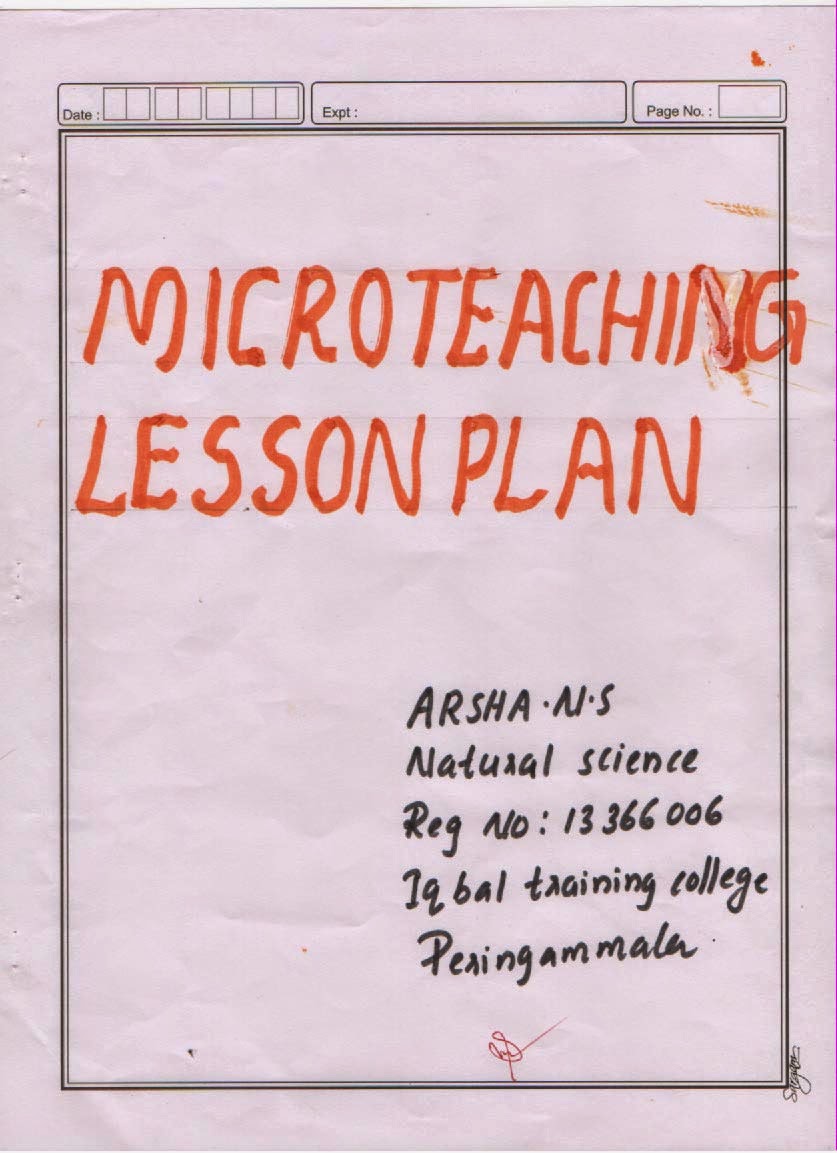 Date :
Expt :
Page No. :
MICROTEACHING
LESSON PLAN
ARSHA.N.S
Natural science
Reg No: 13366006
Iqbal training college
Peringammala